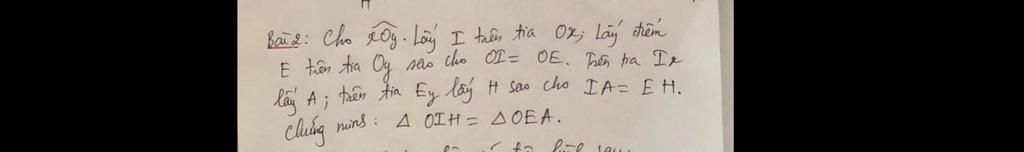 H
Bài 2: Cho xOy. Lấy I trên tia Ox; Lấy điểm
E trên tia Oy sao cho OI = OE. Trên tia Ix
lấy A; trên tia Ey lấy H sao cho IA = EH.
Chứng minh: Δ OIH = Δ OEA.